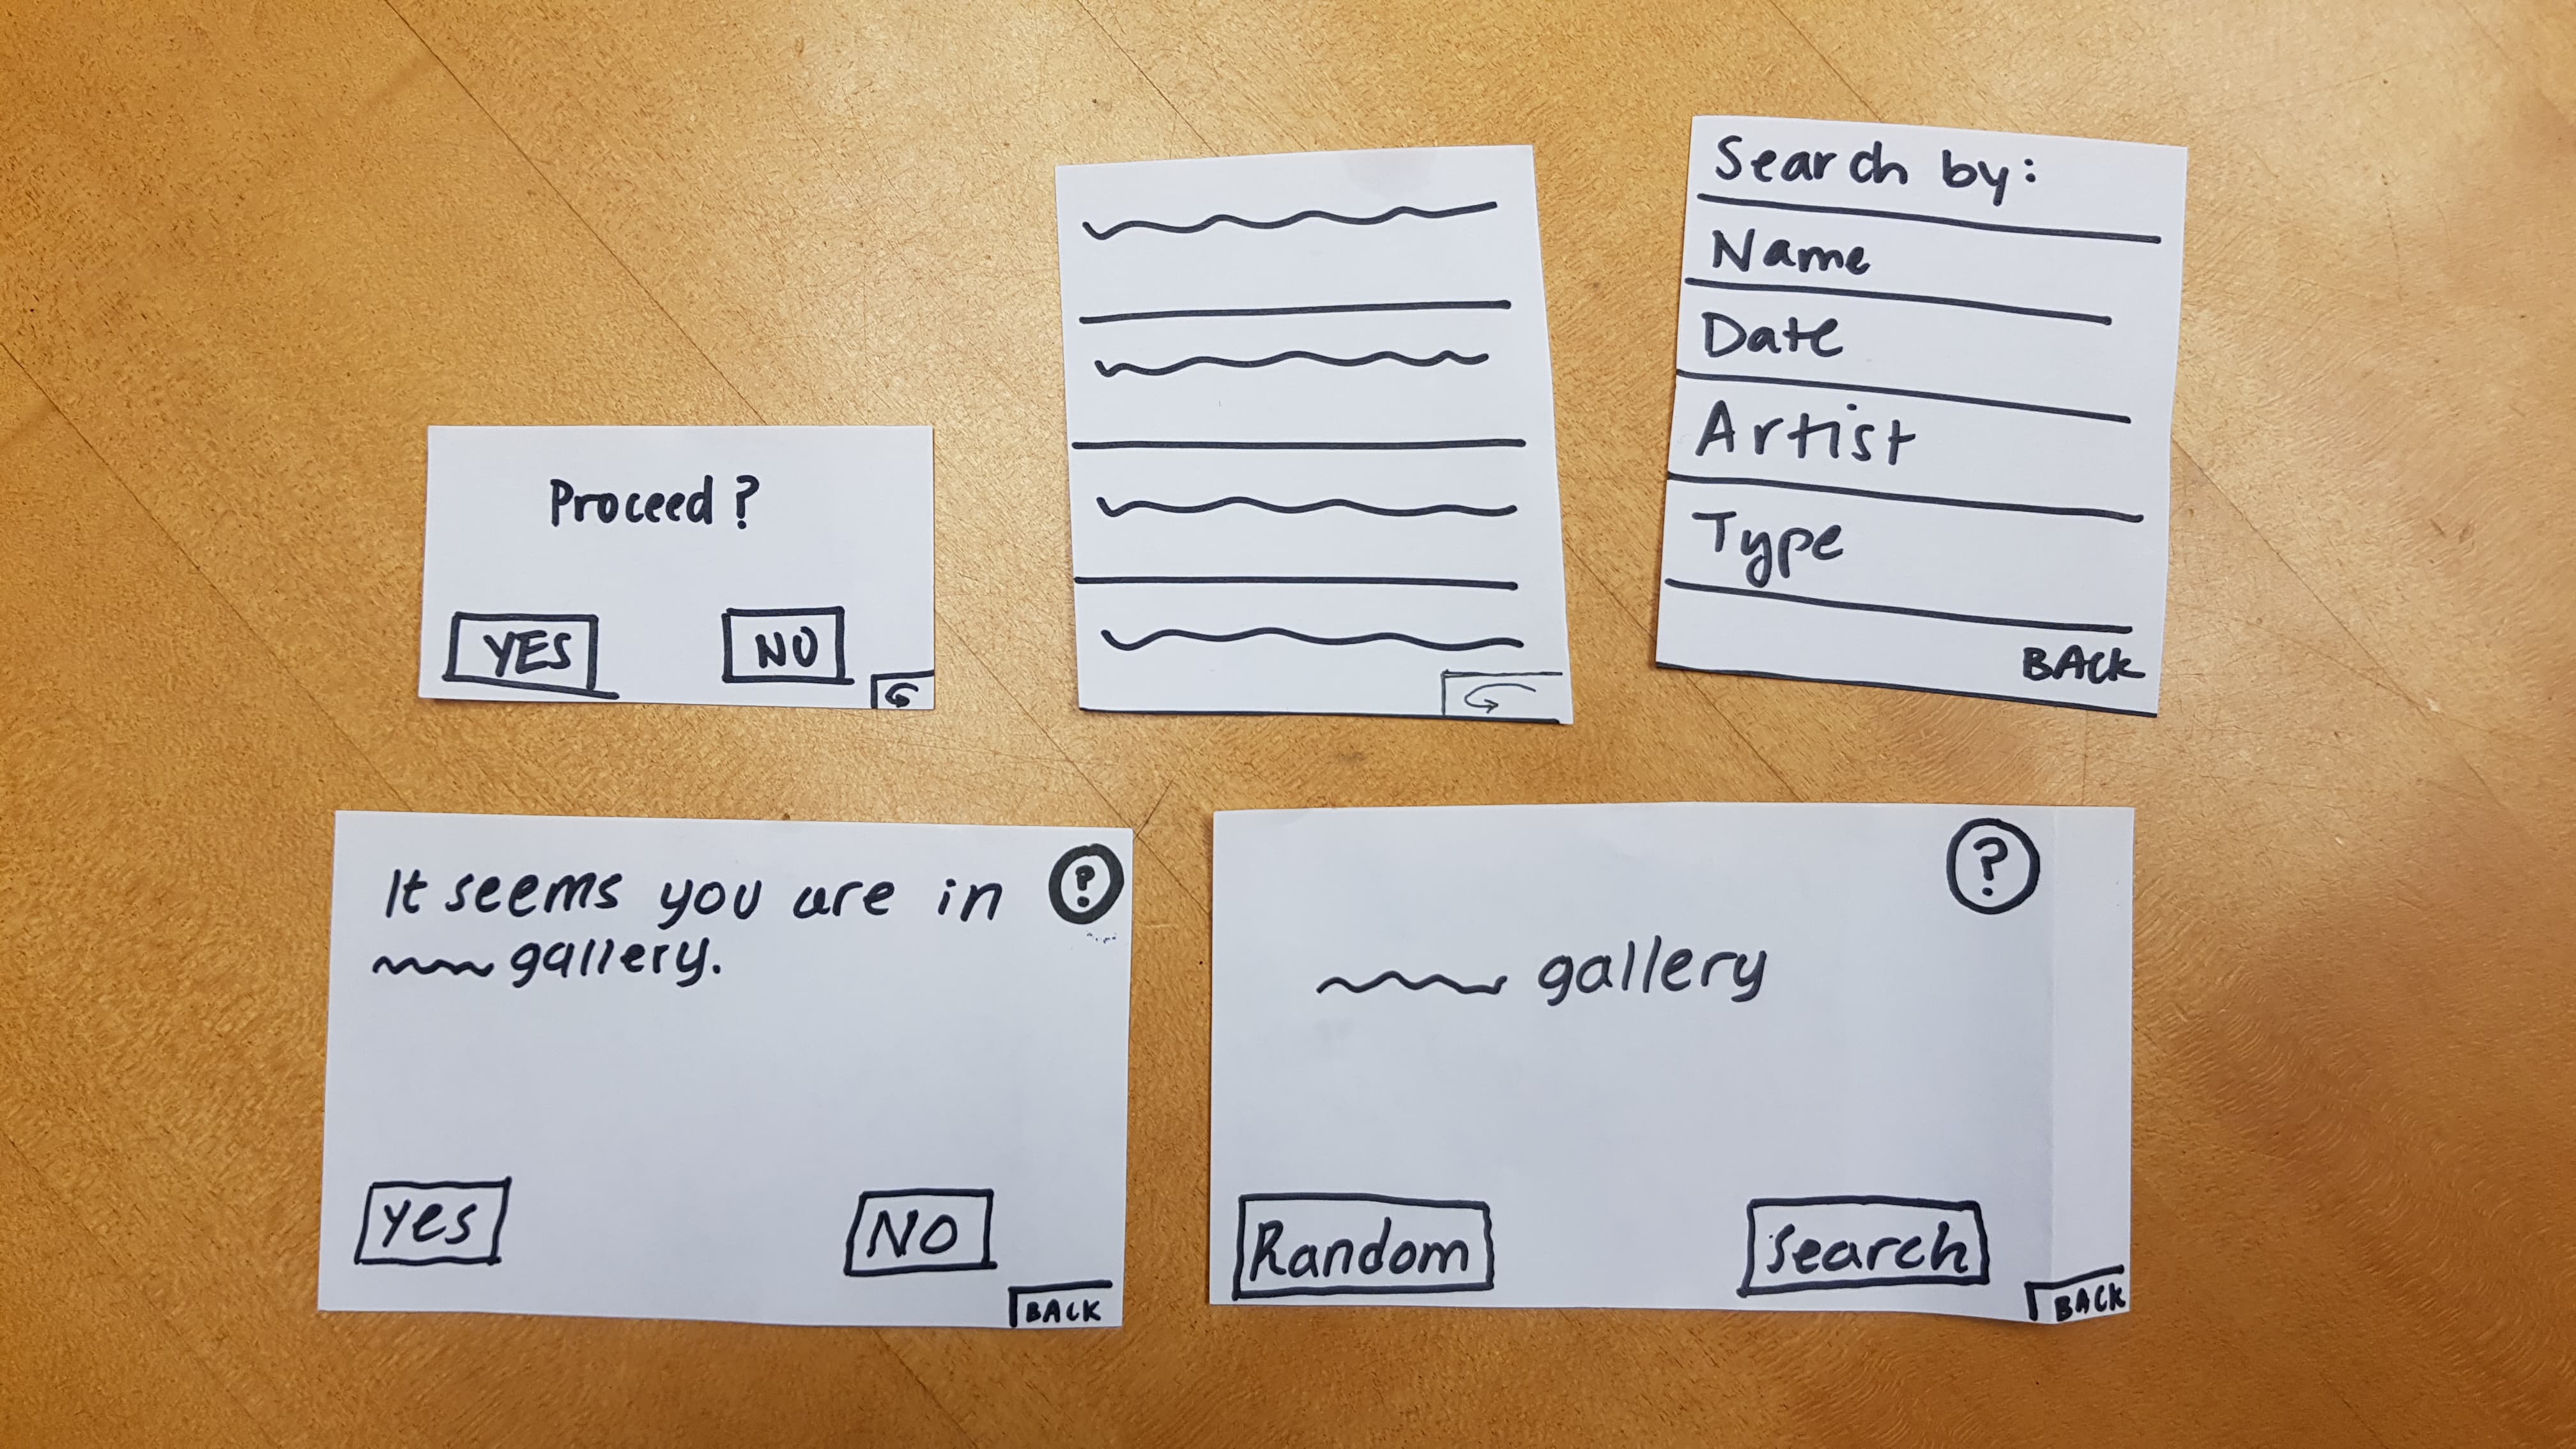 Proceed?
YES NO
Search by:
Name
Date
Artist
Type
BACK
It seems you are in ?
gallery.
Yes NO
BACK
?
gallery
Random Search
BACK